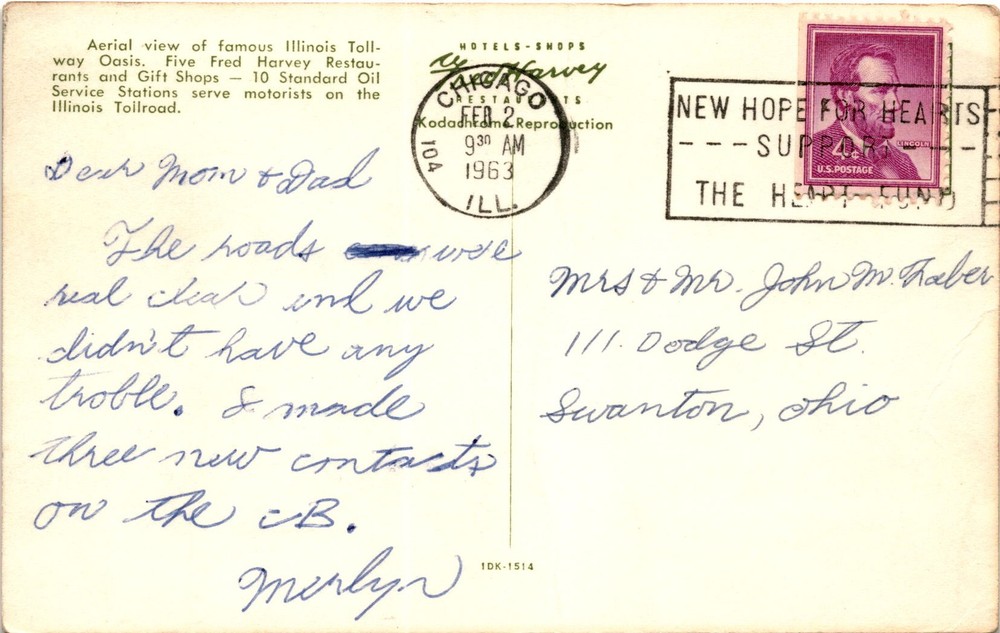 Aerial view of famous Illinois Toll-
way Oasis. Five Fred Harvey Restau-
rants and Gift Shops — 10 Standard Oil
Service Stations serve motorists on the
Illinois Toilroad.
HOTELS-SHOPS
Fred Harvey
RESTAURANTS
Kodachrome Reproduction
CHICAGO
FEB 2
9³⁰ AM
1963
ILL.
104
NEW HOPE FOR HEARTS
---SUPPORT---
THE HEART FUND
LINCOLN
4¢
U.S. POSTAGE
Dear Mom & Dad
The roads were
real clear and we
didn't have any
troble. I made
three new contacts
on the CB.
Merlyn
Mrs & Mr. John M.
111 Dodge St.
Swanton, Ohio
1DK-1514